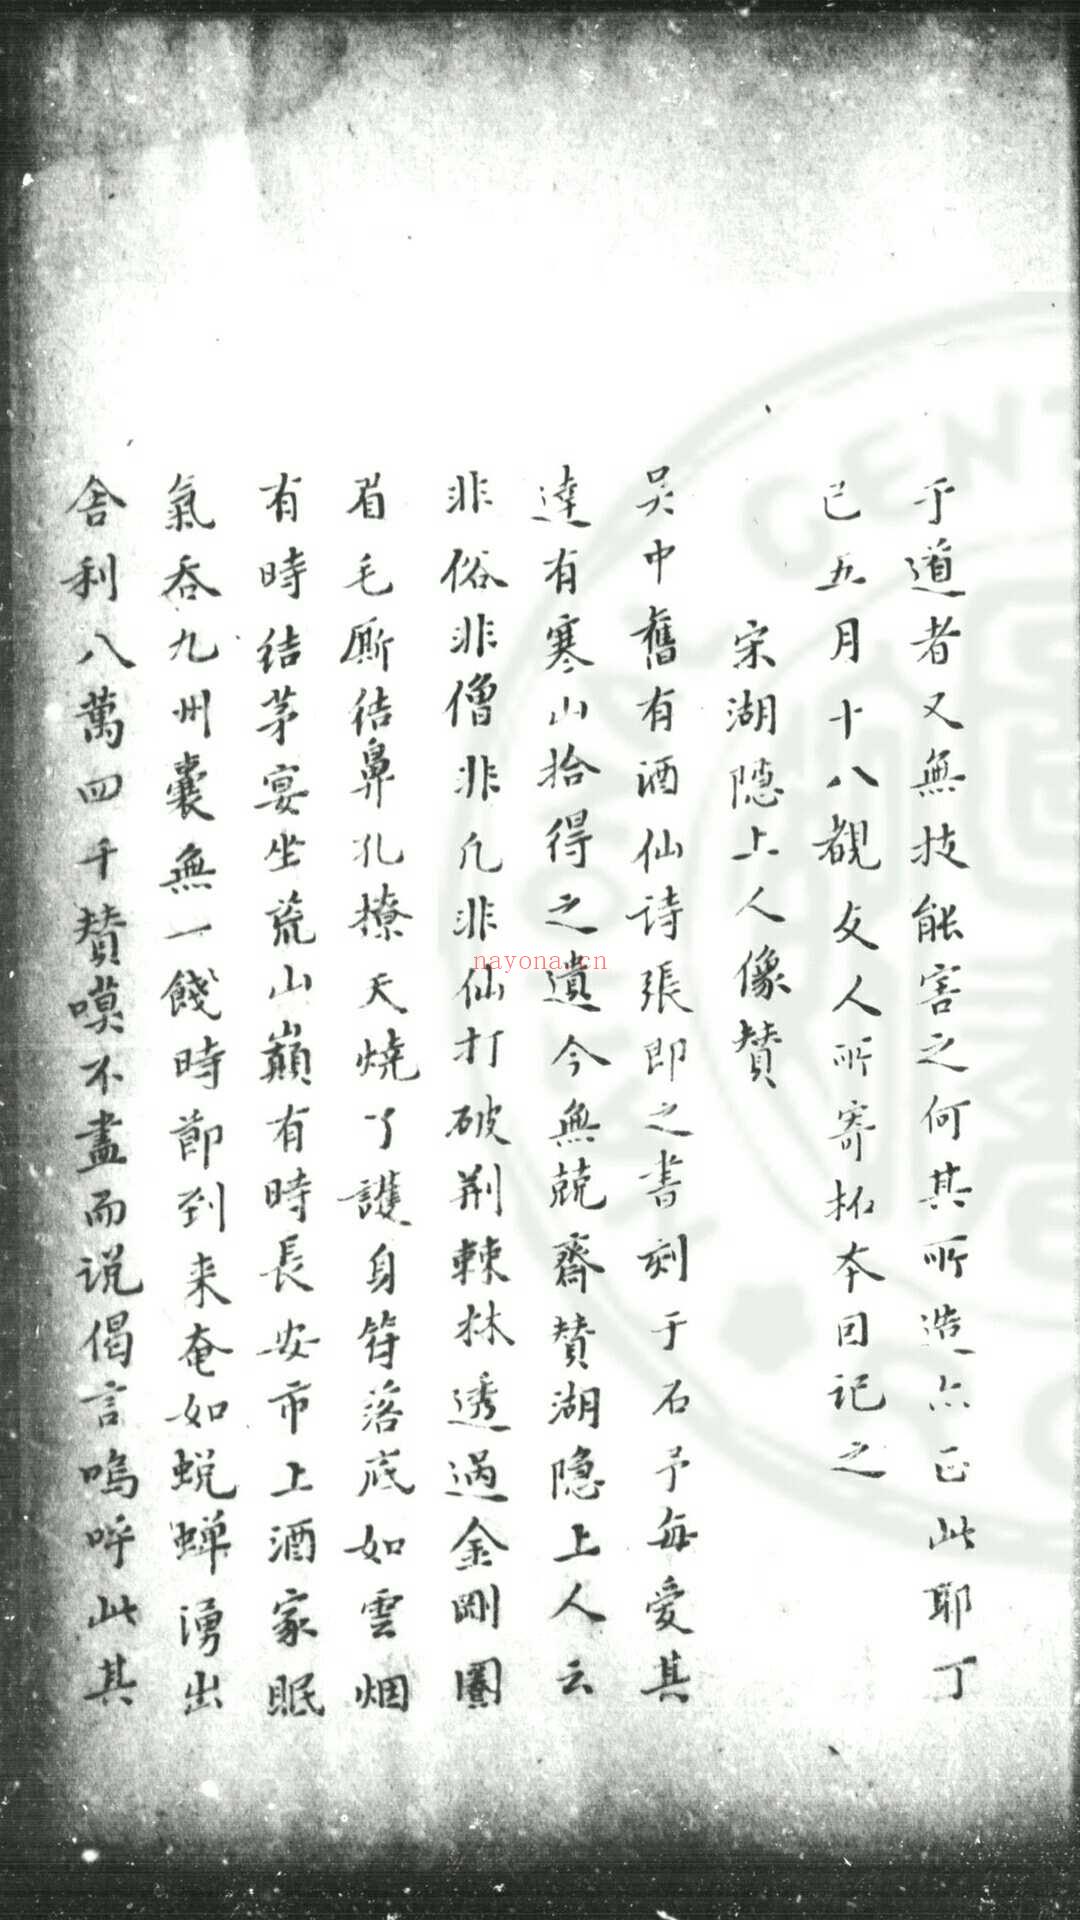 于道者又無技能害之何其所造亦正此耶丁
已五月十八觀友人所寄拓本因記之
宋湖隱上人像贊
吴中舊有酒仙诗張即之書刻于石予每愛其
達有寒山拾得之遺今無兢齋贊湖隐上人云
非俗非僧非凡非仙打破荆棘林透過金剛圈
眉毛厮结鼻孔撩天燒了護身符落底如雲烟
有時结茅宴坐荒山巔有時長安市上酒家眠
氣吞九州囊無一餞時節到来奄如蜕蟬湧出
舍利八萬四千賛嘆不盡而说偈言嗚呼此其
nayona.cn